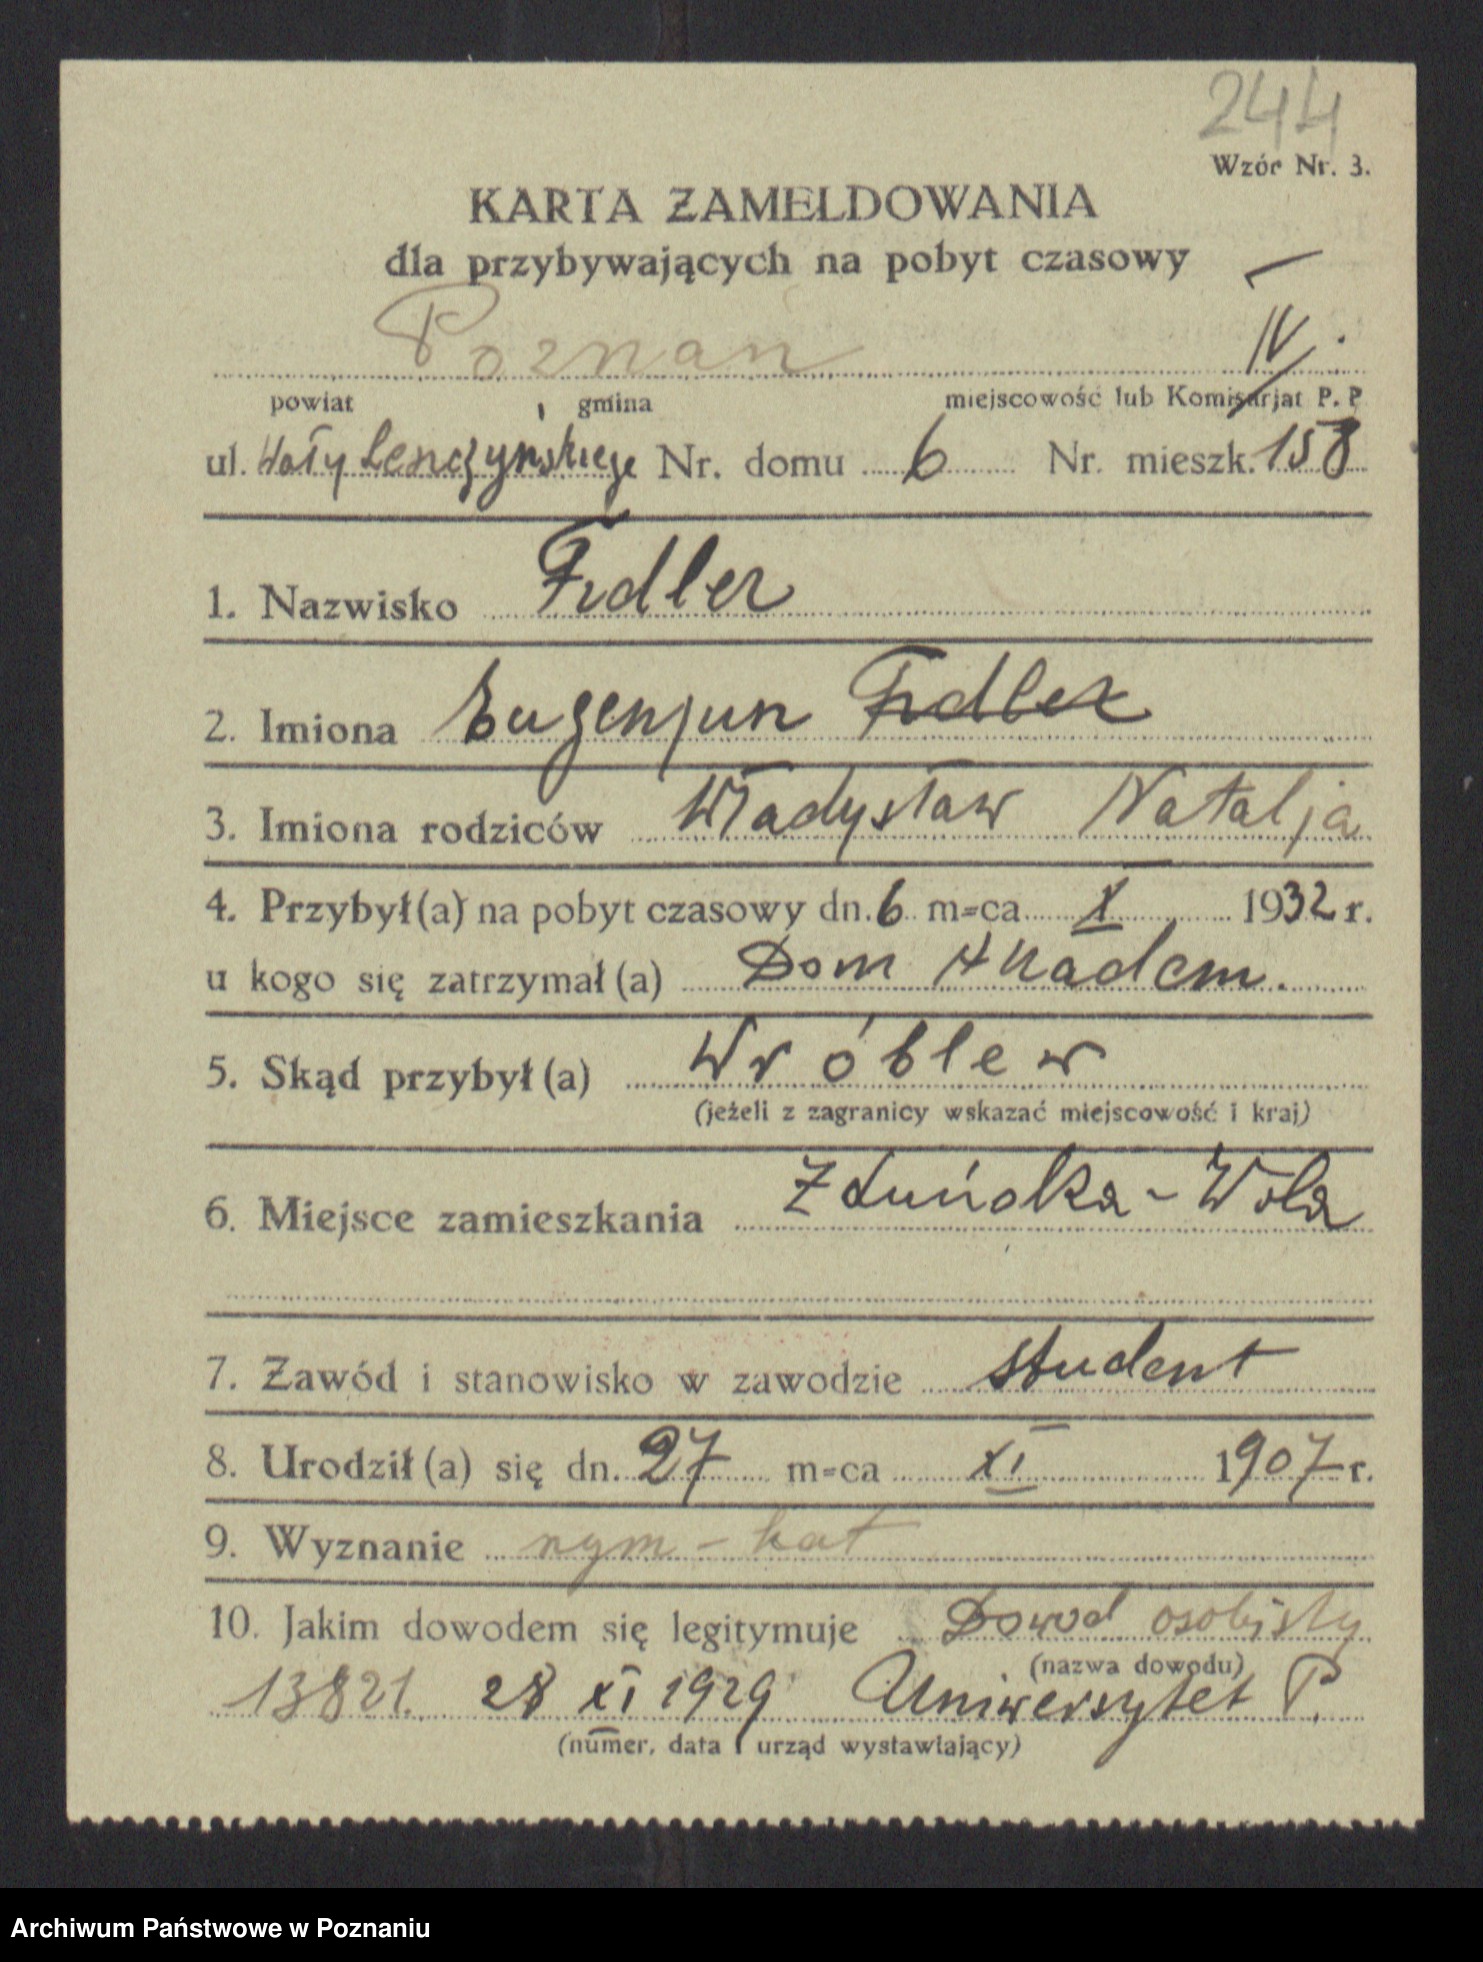 244
Wzór Nr. 3.
KARTA ZAMELDOWANIA
dla przybywających na pobyt czasowy
Poznań IV.
powiat gmina miejscowość lub Komisarjat P. P
ul. Wały Nr. domu 6 Nr. mieszk. 158
1. Nazwisko Fidler
2. Imiona Eugenjun Fidler
3. Imiona rodziców Władysław Natalja
4. Przybył(a) na pobyt czasowy dn. 6 m=ca X 1932 r.
u kogo się zatrzymał(a) Dom Akadem.
5. Skąd przybył(a) Wróblew
(jeżeli z zagranicy wskazać miejscowość i kraj)
6. Miejsce zamieszkania Zduńska-Wola
7. Zawód i stanowisko w zawodzie student
8. Urodził(a) się dn. 27 m=ca XI 1907 r.
9. Wyznanie rzym-kat
10. Jakim dowodem się legitymuje Dowod osobisty
(nazwa dowodu)
13821. 28 XI 1929 Uniwersytet P.
(numer, data i urząd wystawiający)
Archiwum Państwowe w Poznaniu